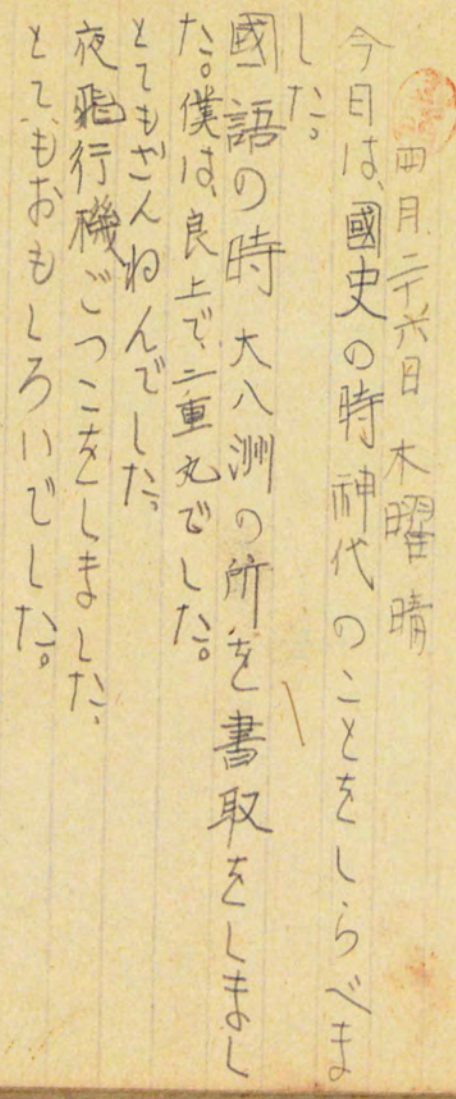 四月二十六日 木曜 晴
今日は、國史の時神代のことをしらべま
した。
國語の時大八洲の所を書取をしまし
た。僕は、良上で、二重丸でした。
とてもざんねんでした。
夜飛行機ごつこをしました、
とてもおもしろいでした。